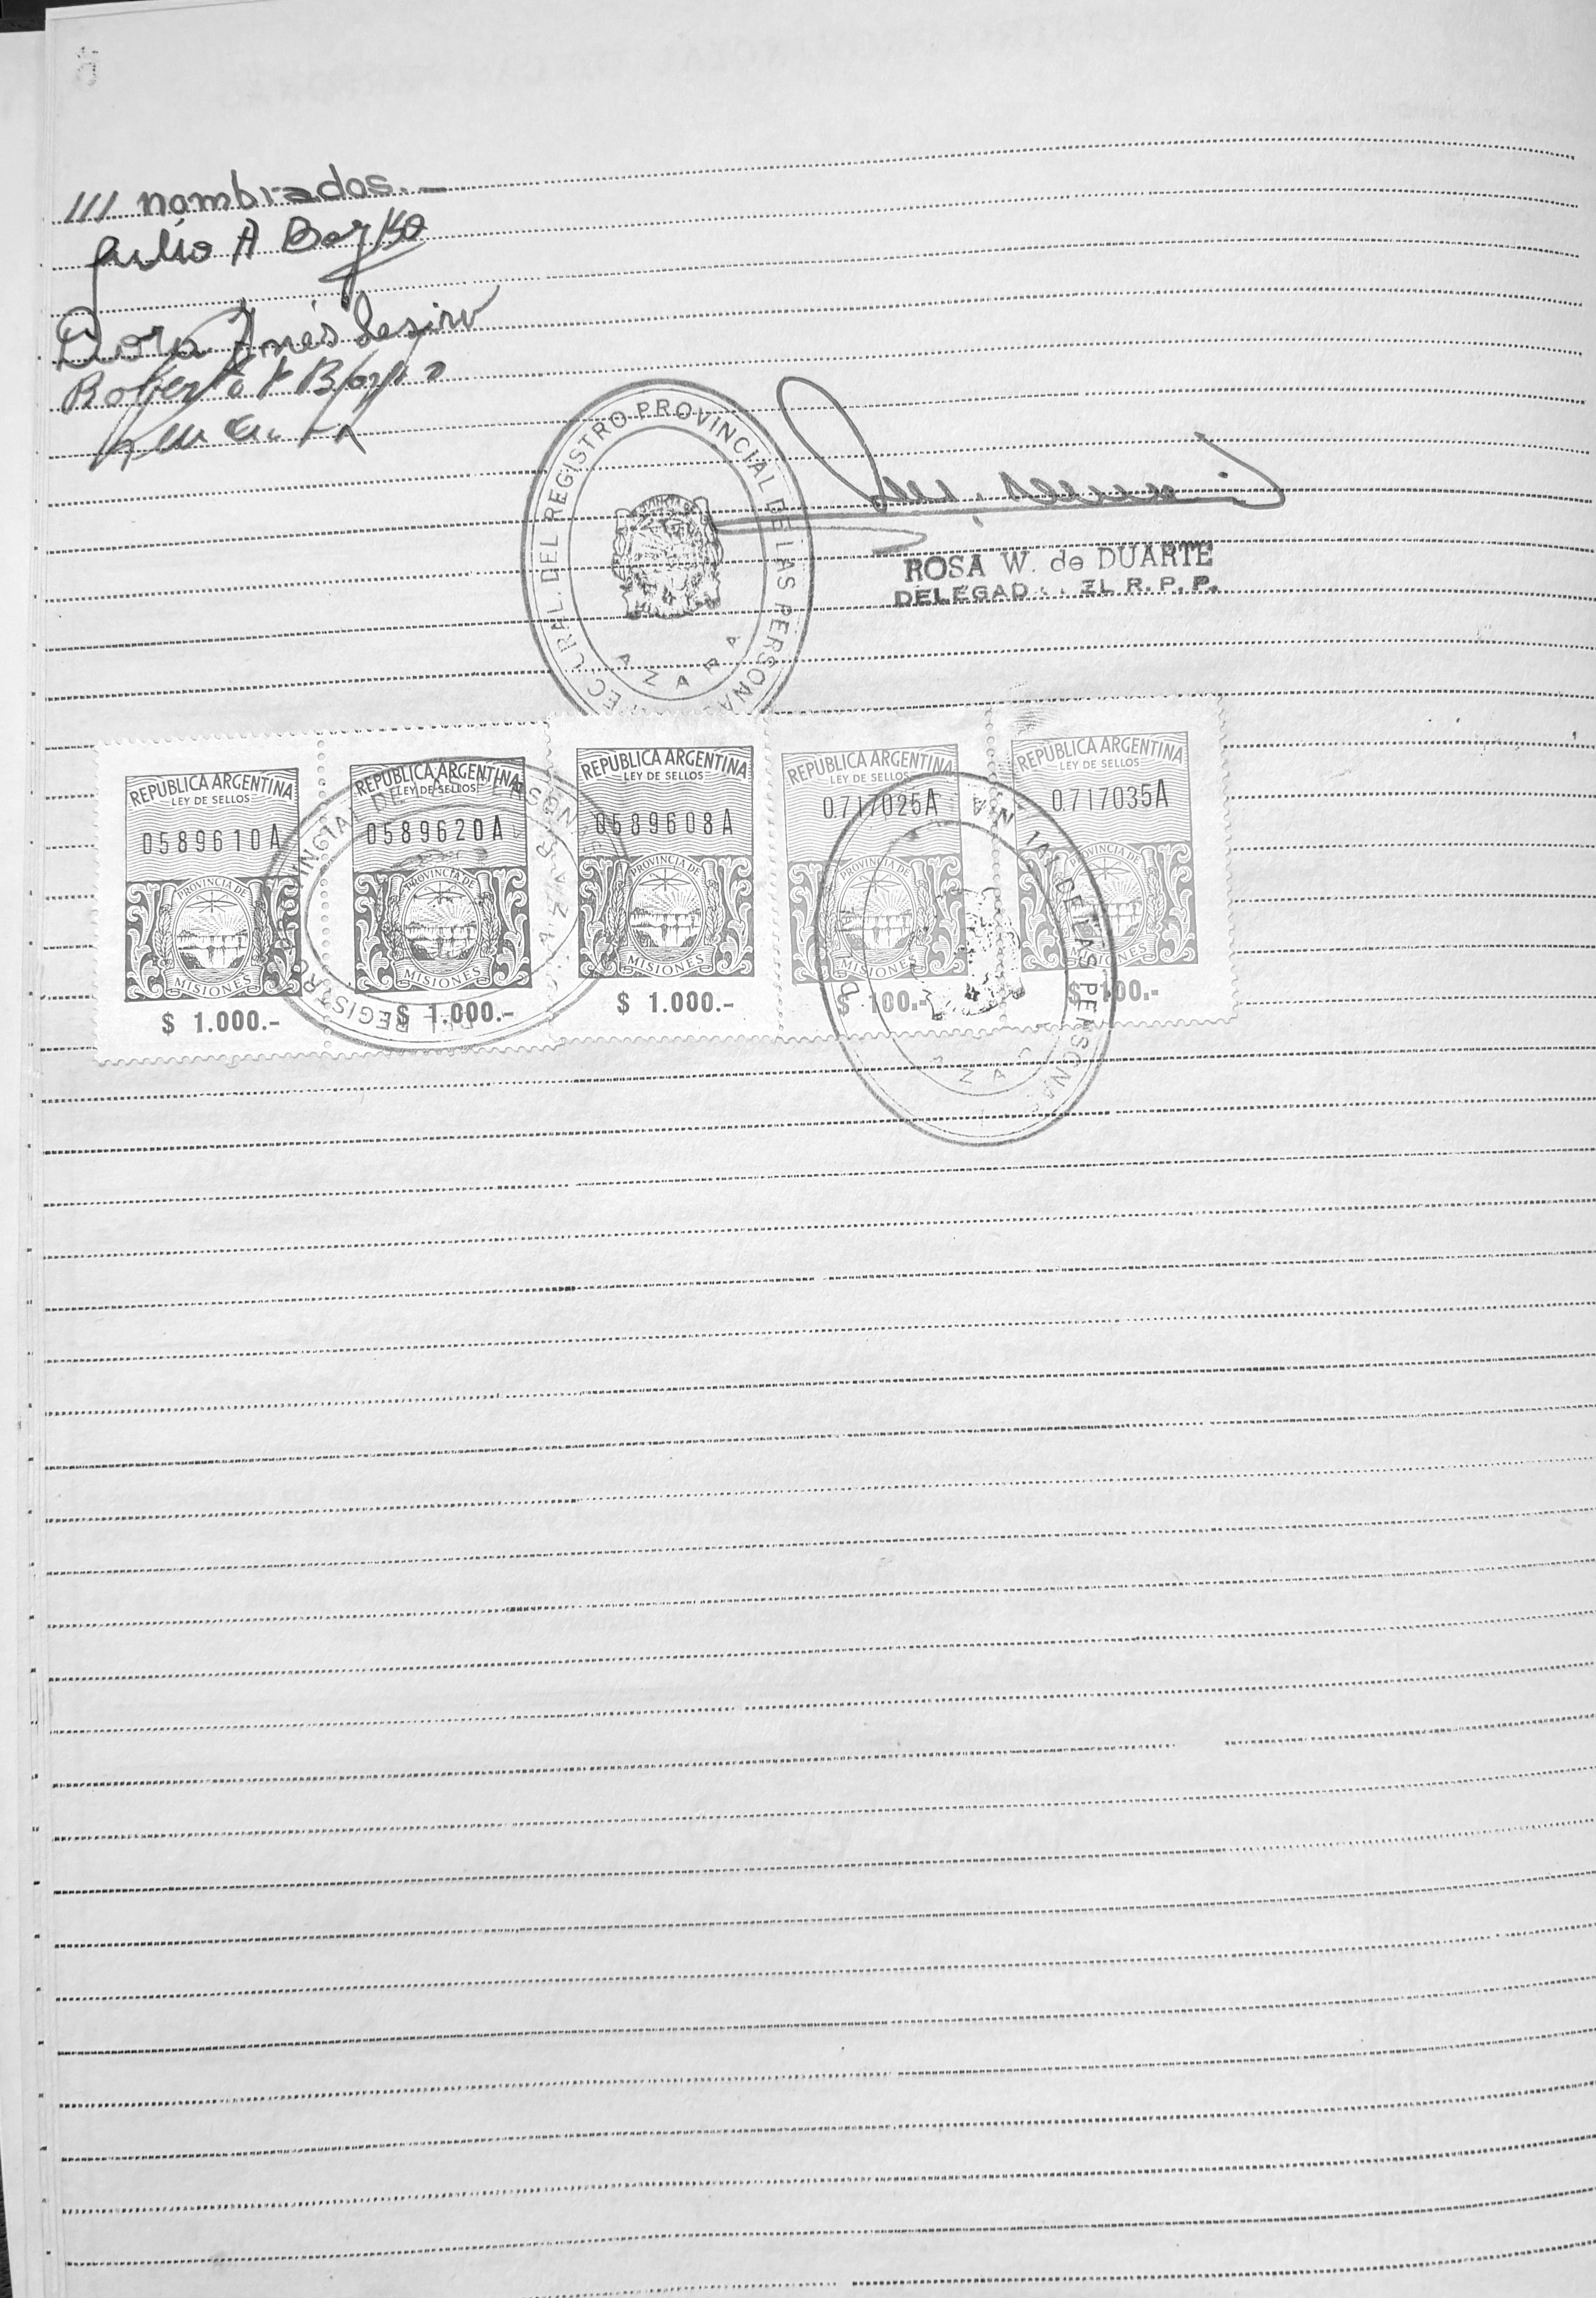 /// nombrados.—
Julio A
Dora Inés
Roberto
DEL REGISTRO PROVINCIAL DE LAS PERSONA
AZARA
ROSA W. de DUARTE
DELEGAD EL R. P. P.
REPUBLICA ARGENTINA
LEY DE SELLOS
0589610A
PROVINCIA DE
MISIONES
$ 1.000.-
REPUBLICA ARGENTINA
LEY DE SELLOS
0589620A
PROVINCIA DE
MISIONES
$ 1.000.-
REPUBLICA ARGENTINA
LEY DE SELLOS
0589608A
PROVINCIA DE
MISIONES
$ 1.000.-
REPUBLICA ARGENTINA
LEY DE SELLOS
0.717025A
PROVINCIA DE
MISIONES
$ 100.-
REPUBLICA ARGENTINA
LEY DE SELLOS
0.717035A
PROVINCIA DE
MISIONES
$ 100.-
DE LAS PERSONA